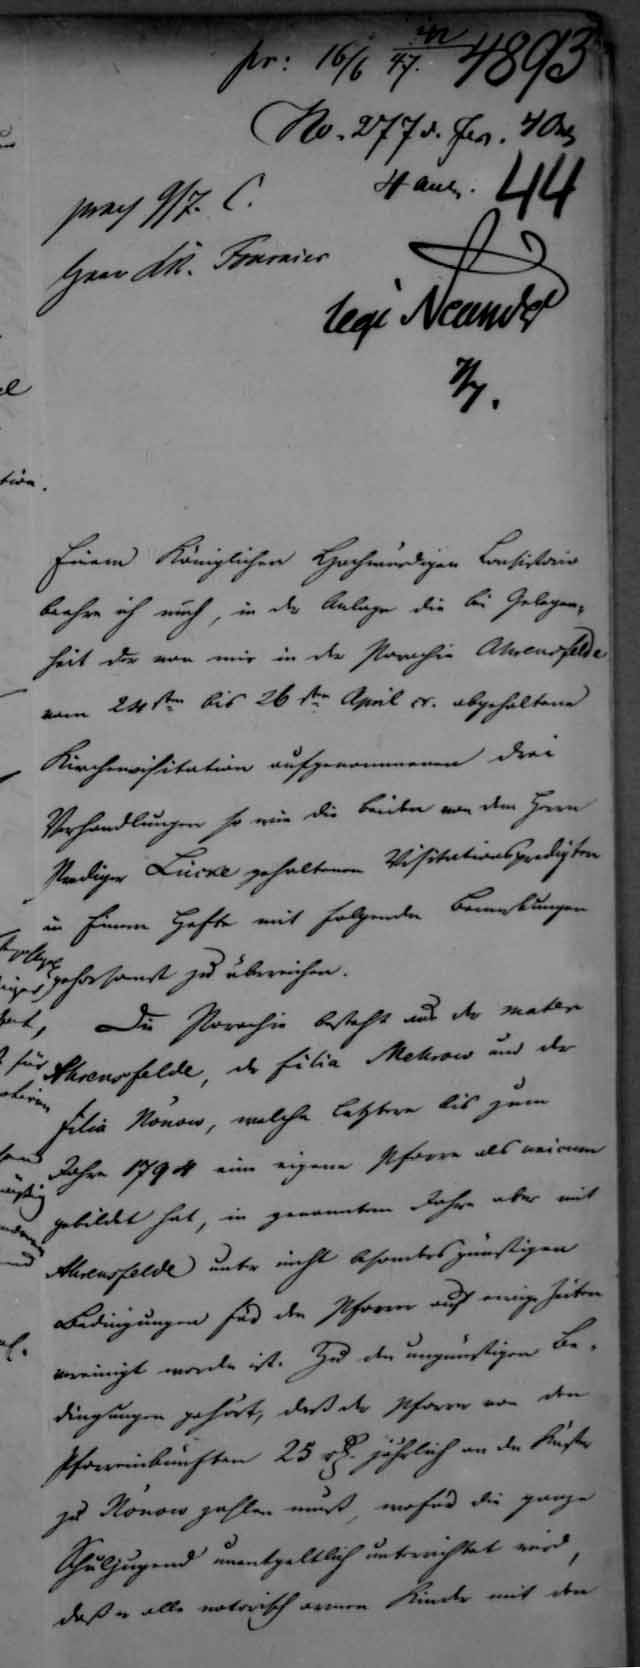 pr: 16/6 47. 4893
No. 277 d. 
4 anl. 44
9/7. C.
Herr CR. Fournier
legi Neander
7/7.
Einem Königlichen Hochwürdigen Consistorio
beehre ich mich, in der Anlage die bei Gelegen-
heit der von mir in der Parochie Ahrensfelde
vom 24sten bis 26sten April cr. abgehaltenen
Kirchenvisitation aufgenommenen drei
Verhandlungen so wie die beiden von dem Herrn
Prediger Lücke gehaltenen Visitationspredigten
in Einem Hefte mit folgenden Bemerkungen
gehorsamst zu überreichen.
Die Parochie besteht aus der mater
Ahrensfelde, der filia Mehrow und der
filia Nönow, welche letztere bis zum
Jahre 1794 eine eigene Pfarre als unicum
gebildet hat, in genanntem Jahre aber mit
Ahrensfelde unter nicht besonders günstigen
Bedingungen für den Pfarrer auf ewige Zeiten
vereinigt worden ist. Zu den ungünstigen Be-
dingungen gehört, daß der Pfarrer von den
Pfarreinkünften 25 rth. jährlich an den Küster
zu Nönow zahlen muß, wofür die ganze
Schuljugend unentgeltlich unterrichtet wird,
daß er alle notorisch armen Kinder mit den